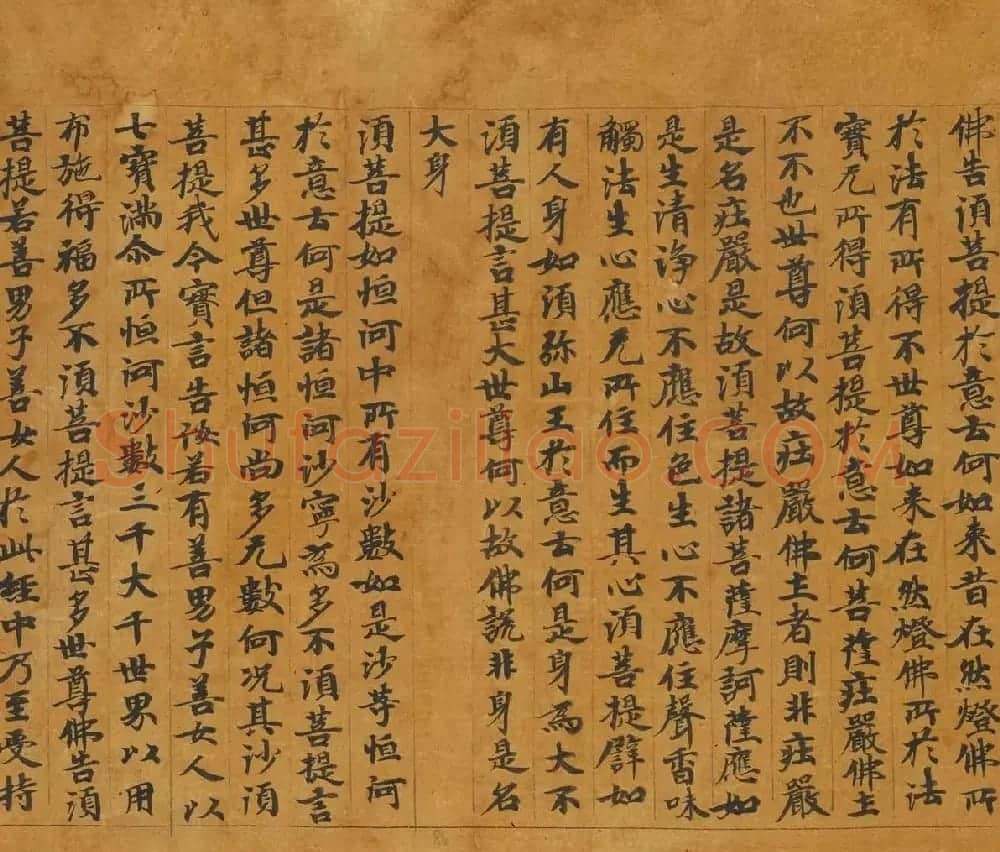 佛告湏菩提扵意云何如来昔在然燈佛所
扵法有所得不世尊如来在然燈佛所扵法
實无所得湏菩提扵意云何菩薩莊嚴佛土
不不也世尊何以故莊嚴佛土者則非莊嚴
是名莊嚴是故湏菩提諸菩薩摩訶薩應如
是生清淨心不應住色生心不應住聲香味
觸法生心應无所住而生其心湏菩提譬如
有人身如湏弥山王扵意云何是身為大不
湏菩提言甚大世尊何以故佛說非身是名
大身
湏菩提如恒河中所有沙數如是沙等恒河
扵意云何是諸恒河沙寧為多不湏菩提言
甚多世尊但諸恒河尚多无數何况其沙湏
菩提我今實言告汝若有善男子善女人以
七寶滿尒所恒河沙數三千大千世界以用
布施得福多不湏菩提言甚多世尊佛告湏
菩提若善男子善女人扵此經中乃至受持
Shufaziliao.COM